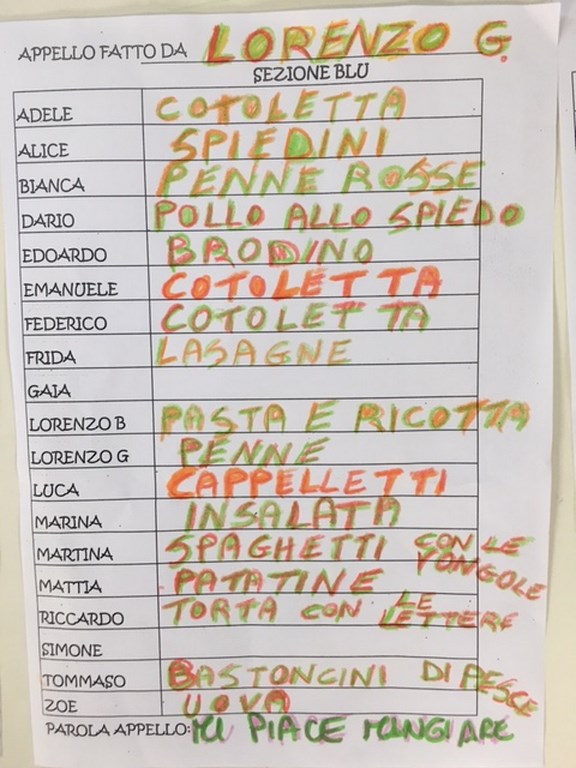 APPELLO FATTO DA LORENZO G.
SEZIONE BLU
ADELE COTOLETTA
ALICE SPIEDINI
BIANCA PENNE ROSSE
DARIO POLLO ALLO SPIEDO
EDOARDO BRODINO
EMANUELE COTOLETTA
FEDERICO COTOLETTA
FRIDA LASAGNE
GAIA
LORENZO B PASTA E RICOTTA
LORENZO G PENNE
LUCA CAPPELLETTI
MARINA INSALATA
MARTINA SPAGHETTI CON LE VONGOLE
MATTIA PATATINE
RICCARDO TORTA CON LE LETTERE
SIMONE
TOMMASO BASTONCINI DI PESCE
ZOE UOVA
PAROLA APPELLO: MI PIACE MANGIARE